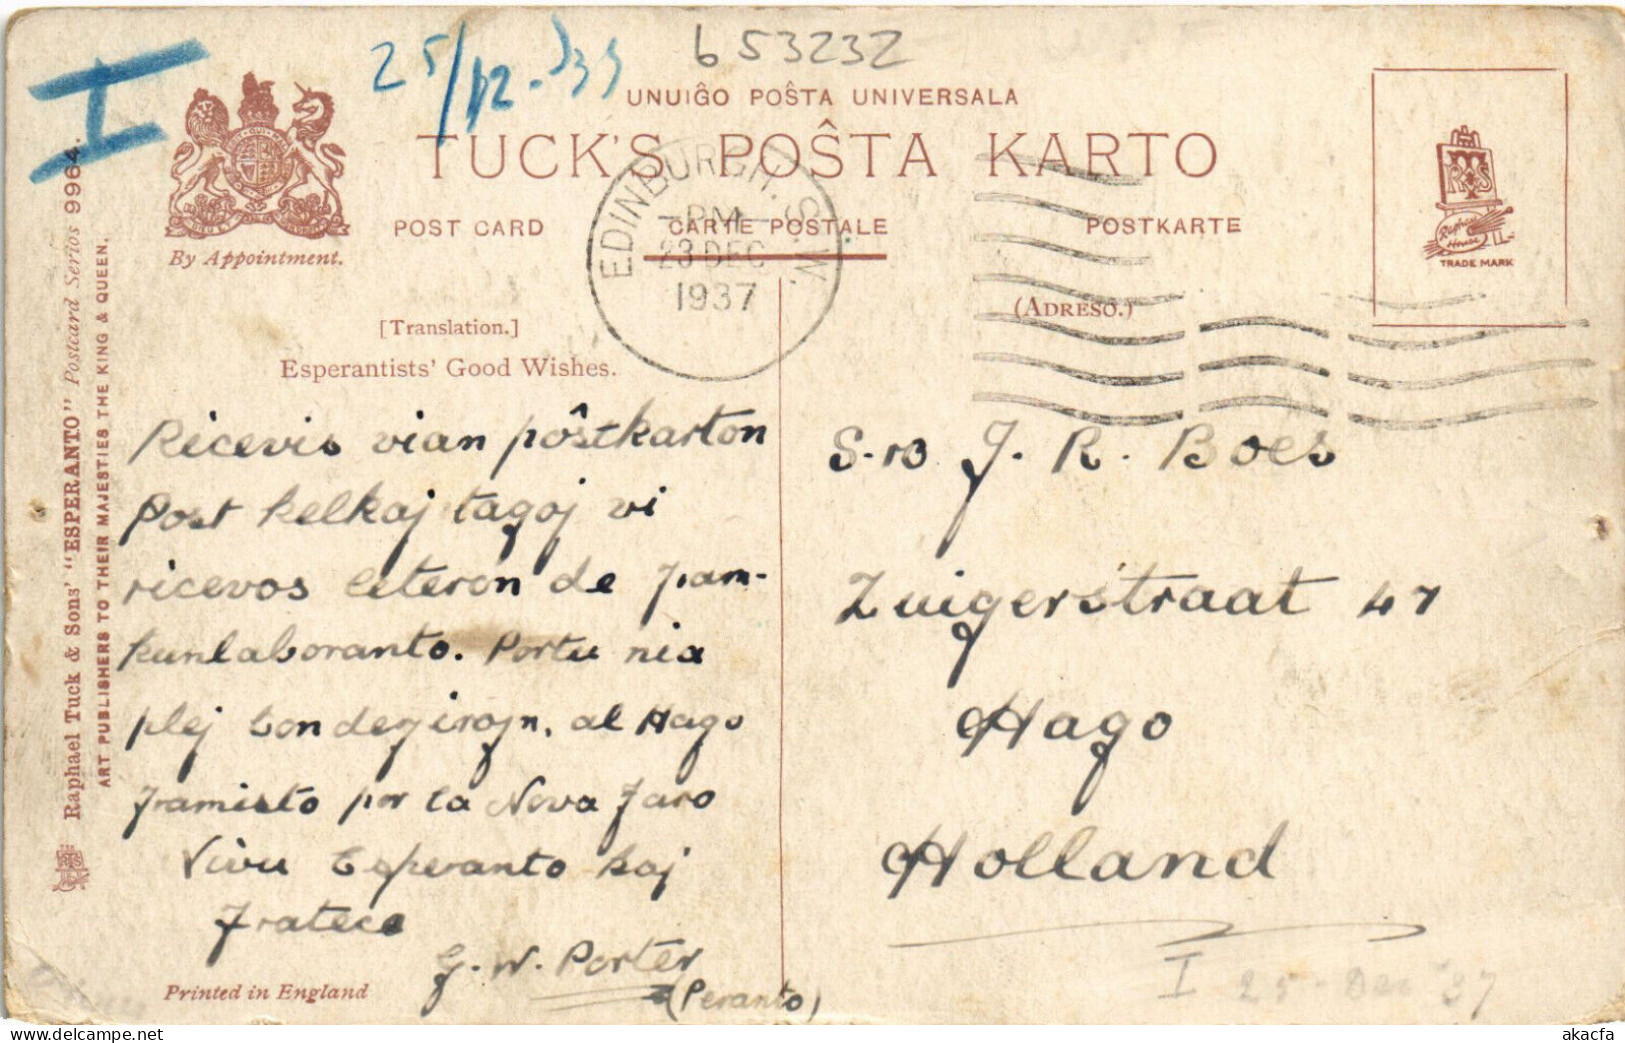 I
25/12-
653232
UNUIĜO POŜTA UNIVERSALA
TUCK'S POŜTA KARTO
By Appointment.
POST CARD
CARTE POSTALE
POSTKARTE
EDINBURGH. S.W.
-PM-
23 DEC
1937
Raphael House
TRADE MARK
[Translation.]
(ADRESO.)
Esperantists' Good Wishes.
Raphael Tuck & Sons' "ESPERANTO" Postcard Series 9964.
ART PUBLISHERS TO THEIR MAJESTIES THE KING & QUEEN.
Ricevis vian pôstkarton
Post kelkaj tagoj vi
ricevos leteron de sam-
kunlaboranto. Portu nia
plej bon dezirojn, al Hago
Samisto por la Nova Jaro
Vivu Esperanto kaj
Frateco
G. W. Porter
(Peranto)
S-ro J. R. Boes
Zuigerstraat 47
Hago
Holland
I 25 - Dec '37
Printed in England
akacfa